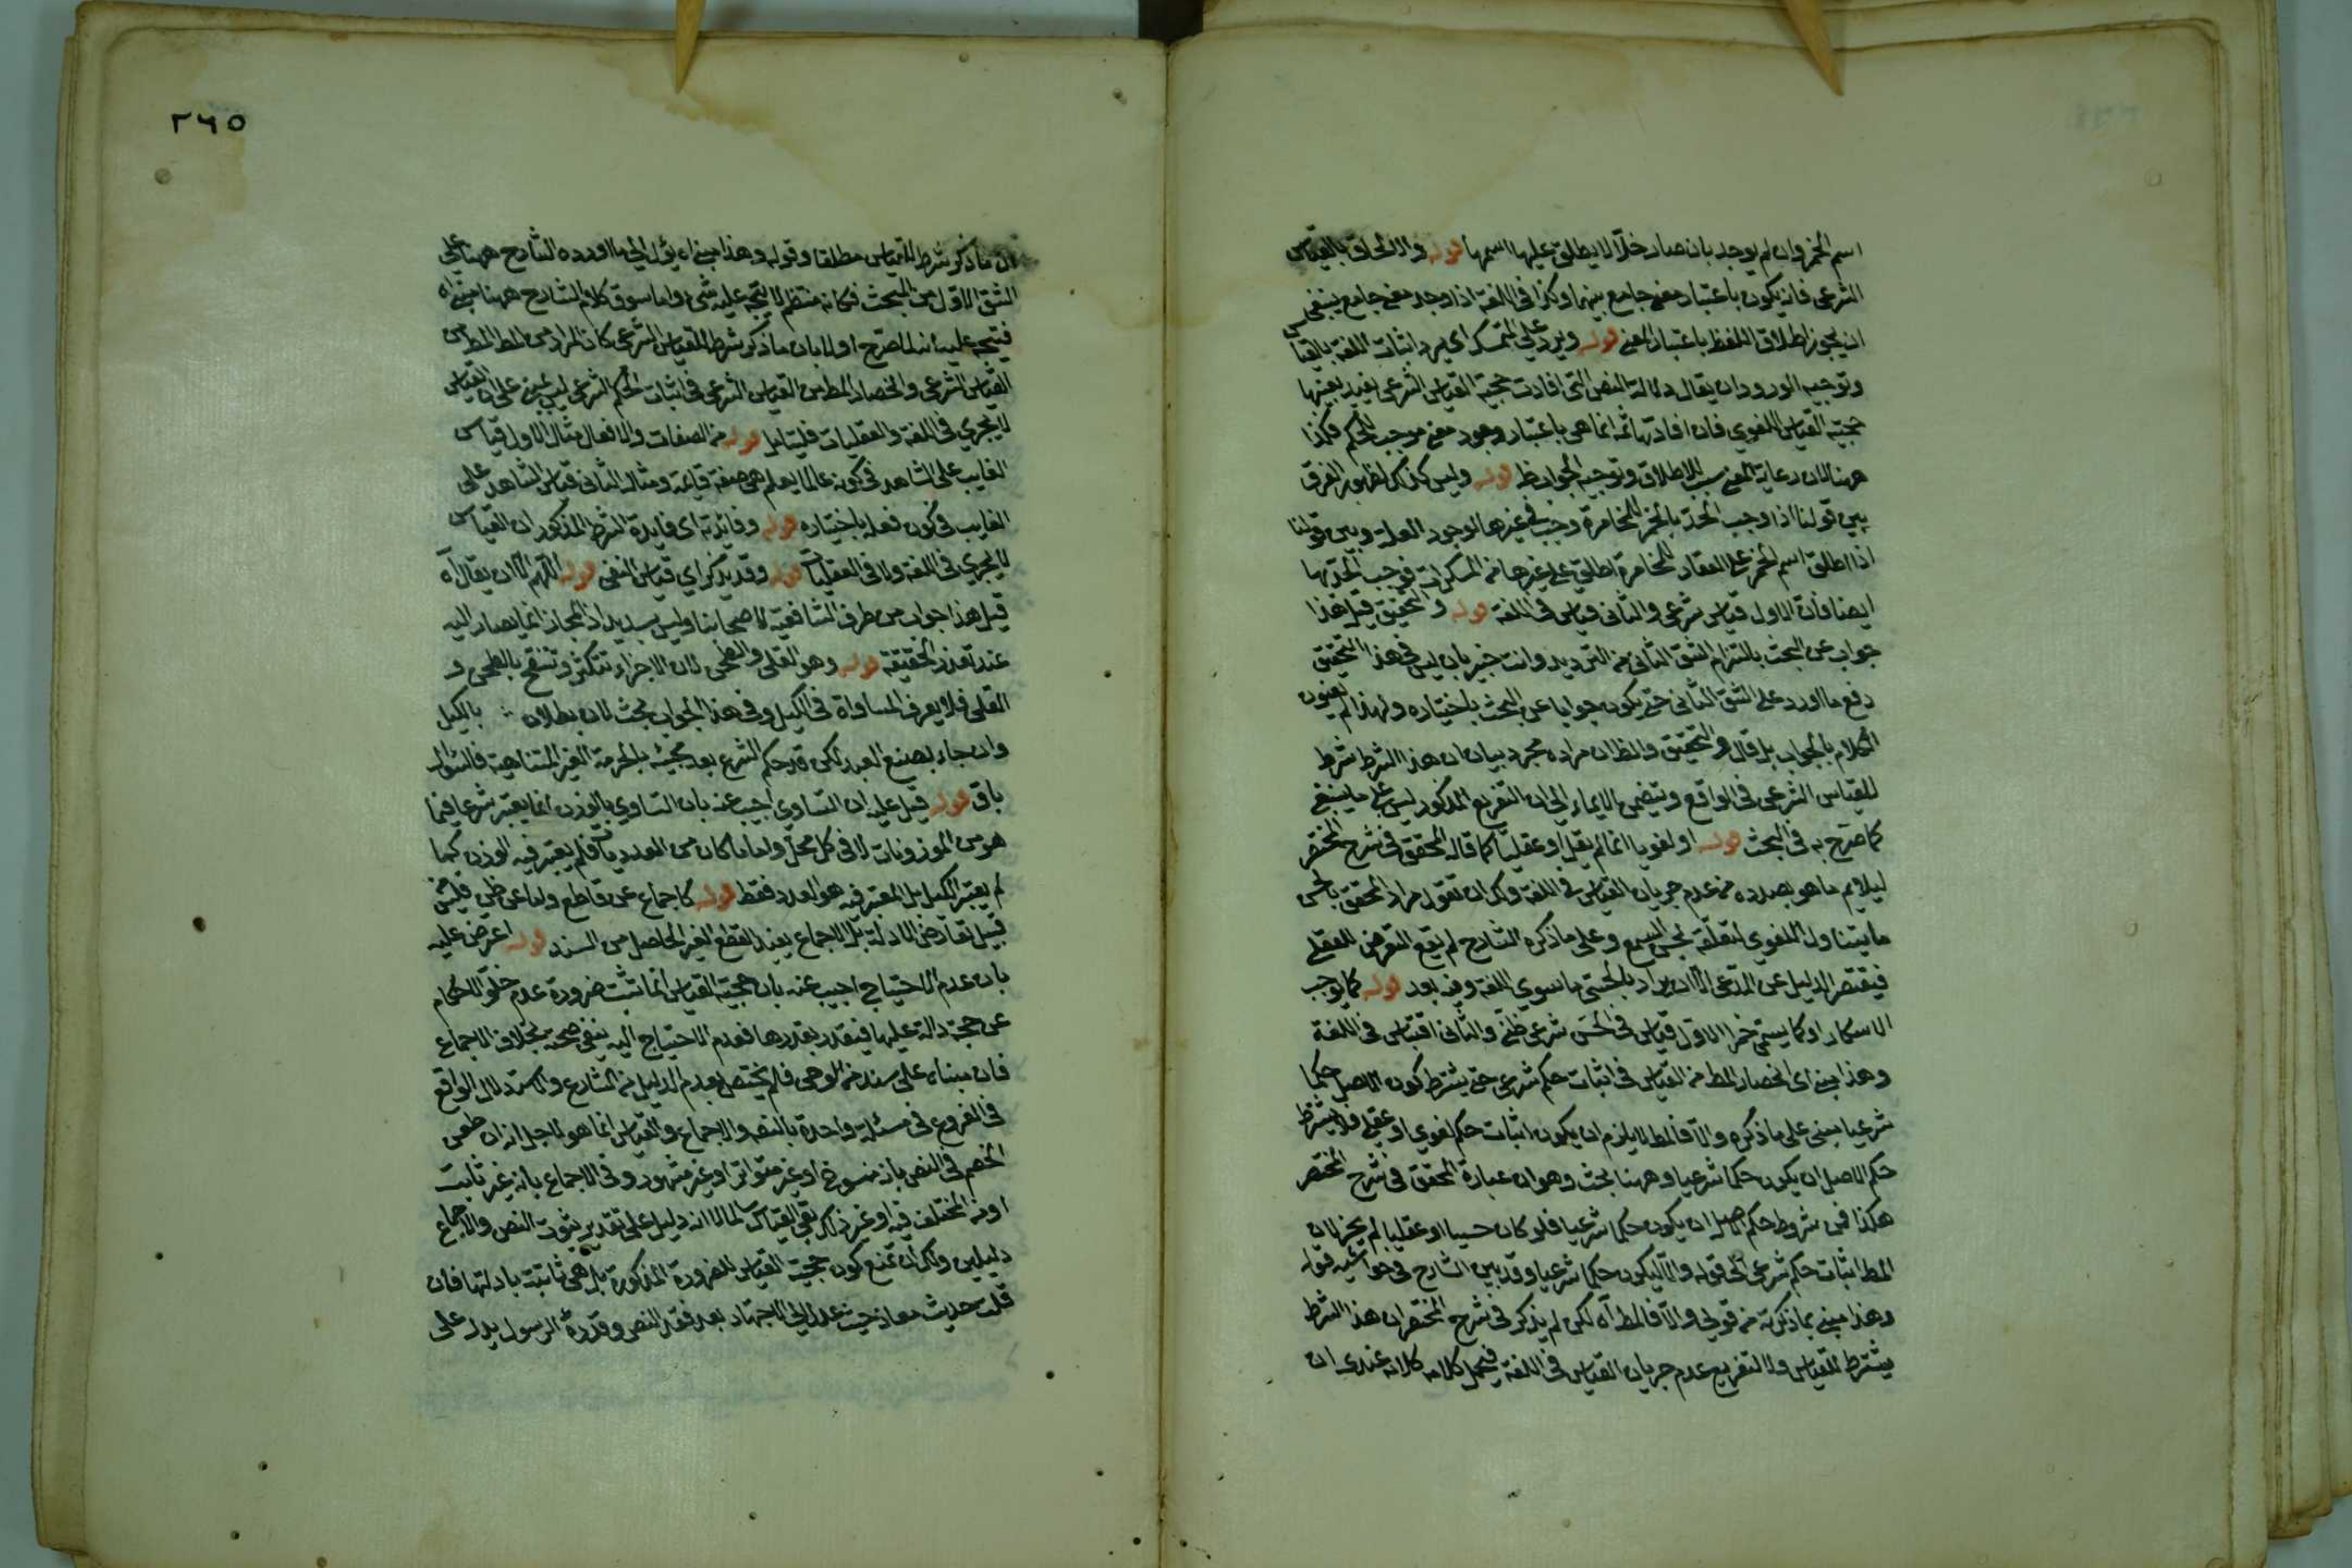 اسم الخمر وان لم يوجد بان صار خلا لا يطلق عليها اسمها قوله والالحاق بالقياس
الشرعى فانه يكون باعتبار معنى جامع بينهما وكذا فى اللغة اذا وجد معنى جامع ينبغى
ان يجوز اطلاق اللفظ باعتبار المعنى قوله ويرد على المتمسك اى يرد اثبات اللغة بالقياس
وتوجيه الورود ان يقال دلالة النص التى افادت حجية القياس الشرعى يفيد بعينها
حجية القياس اللغوي فان افادتها ثمه انما هى باعتبار وجود معنى موجب للحكم فكذا
ههنا لان رعاية المعنى سبب للاطلاق وتوجيه الجواب ظ قوله وليس كذلك لظهور الفرق
بين قولنا اذا وجب الحد بالخمر للمخامرة وجب فى غيرها لوجود العلة وبين قولنا
اذا اطلق اسم الخمر على العقار للمخامرة اطلق على غيرها من المسكرات فوجب الحد بها
ايضا فان الاول قياس شرعى والثانى قياس فى اللغة قوله والتحقيق قيل هذا
جواب عن البحث بالتزام الشق الثانى من الترديد وانت خبير بان ليس فى هذا التحقيق
دفع ما اورد على الشق الثانى حتى يكون جوابا عن البحث باختياره ولهذا لم يعنون
الكلام بالجواب بل قال والتحقيق والظ ان مراده مجرد بيان ان هذا الشرط شرط
للقياس الشرعى فى الواقع ويتضمن الايماء الى ان التفريع المذكور ليس على ما ينبغى
كما صرح به فى البحث قوله او لغويا انما لم يقل او عقليا كما قاله المحقق فى شرح المختصر
ليلايم ما هو بصدده من عدم جريان القياس فى اللغة ولك ان تقول مراد المحقق بالحسى
ما يتناول اللغوي لتعلقه بحس السمع وعلى ما ذكره الشارح لم يقع التعرض للعقلى
فيقتصر الدليل عن المدعى الا ان يراد بالحسى ما سوى اللغة وفيه بعد قوله كما يوجب
الاسكار او كما يسمى خمرا الاول قياس فى الحس شرعى ظنى والثانى اقتباس فى اللغة
وهذا مبنى اى انحصار المط من القياس فى اثبات حكم شرعى حتى يشترط كون الاصل حكما
شرعيا مبنى على ما ذكره والا فالمط لا يلزم ان يكون اثبات حكم لغوي او عقلى فلا يشترط
حكم الاصل ان يكون حكما شرعيا وههنا بحث وهو ان عبارة المحقق فى شرح المختصر
هكذا فمن شروط حكم الاصل ان يكون حكما شرعيا فلو كان حسيا او عقليا لم يجز لان
المط اثبات حكم شرعى الى قوله والا ليكون حكما شرعيا وقد بين الشارح فى حواشيه قوله
وهذا مبنى بما ذكرته من قولى والا فالمط اه لكن لم يذكر فى شرح المختصر ان هذا الشرط
يشترط للقياس ولا التفريع عدم جريان القياس فى اللغة فيحمل كلامه كلانه عندى ان
٢٦٥
ان ما ذكر شرط للقياس مطلقا وقوله وهذا مبنى اه يؤل الى ما اورده الشارح ههنا على
الشق الاول من البحث فكانه منتظم لا يتجه عليه شئ واما سوق كلام الشارح ههنا مبنى اه
فيتجه عليه انه لما صرح اولا بان ما ذكر شرط للقياس الشرعى كان المراد من المط المط من
القياس الشرعى وانحصار المط من القياس الشرعى فى اثبات الحكم الشرعى ليس مبنى على ان القياس
لا يجري فى اللغة والعقليات فليتامل قوله من الصفات والافعال مثال الاول قياس
الغايب على الشاهد فى كونه عالما يعلم هى صفة قايمة ومثال الثانى قياس الشاهد على
الغايب فى كون فعله باختياره قوله وفائدته اى فايدة الشرط المذكور ان القياس
لا يجري فى اللغة ولا فى العقليات قوله وقد يذكر اي قياس النفى قوله اللهم الا ان يقال اه
قيل هذا جواب من طرف الشافعية لا صحابنا وليس بسديد اذ المجاز انما يصار اليه
عند تعذر الحقيقة قوله وهو القلى والطحن لان الاجزاء تتكثر وتنتفخ بالطحن و
القلى فلا يعرف المساواة فى الكيل وفى هذا الجواب بحث لان بطلان بالكيل
وان جاء بصنع العبد لكن قد حكم الشرع بعد مجيئه بالحرمة الغير المتناهية فالسؤال
باق قوله قيل عليه ان التساوي اجيب عنه بان التساوي بالوزن انما يعتبر شرعا فيما
هو من الموزونات لا فى كل محل واما ما كان من العدديات فلم يعتبر فيه الوزن كما
لم يعتبر الكيل بل المعتبر فيه هو العدد فقط قوله كاجماع عن قاطع واما عن ظنى فليس من
قبيل تعارض الادلة بل الاجماع يفيد القطع الغير الحاصل من السند قوله اعترض عليه
بان عدم الاحتياج اجيب عنه بان حجية القياس انما ثبت ضرورة عدم خلو الاحكام
عن حجة دالة عليها فيتقدر بقدرها فعدم الاحتياج اليه ينفى صحته بخلاف الاجماع
فان مبناه على سند من الوحى فلم يختص بعدم الدليل من الشارع والاستدلال الواقع
فى الفروع فى مسئلة واحدة بالنص والاجماع والقياس انما هو لاجل انه ان طعن
الخصم فى النص بانه منسوخ او غير متواتر او غير مشهور وفى الاجماع بانه غير ثابت
او من المختلف فيه او غير ذلك بقى القياس سالما لا انه دليل على تقدير ثبوت النص والاجماع
دليلين ولك ان تمنع كون حجية القياس للضرورة المذكورة بل هى ثابتة بادلتها فان
قلت حديث معاذ حيث عدل الى الاجتهاد بعد فقد النص وقرره الرسول يدل على